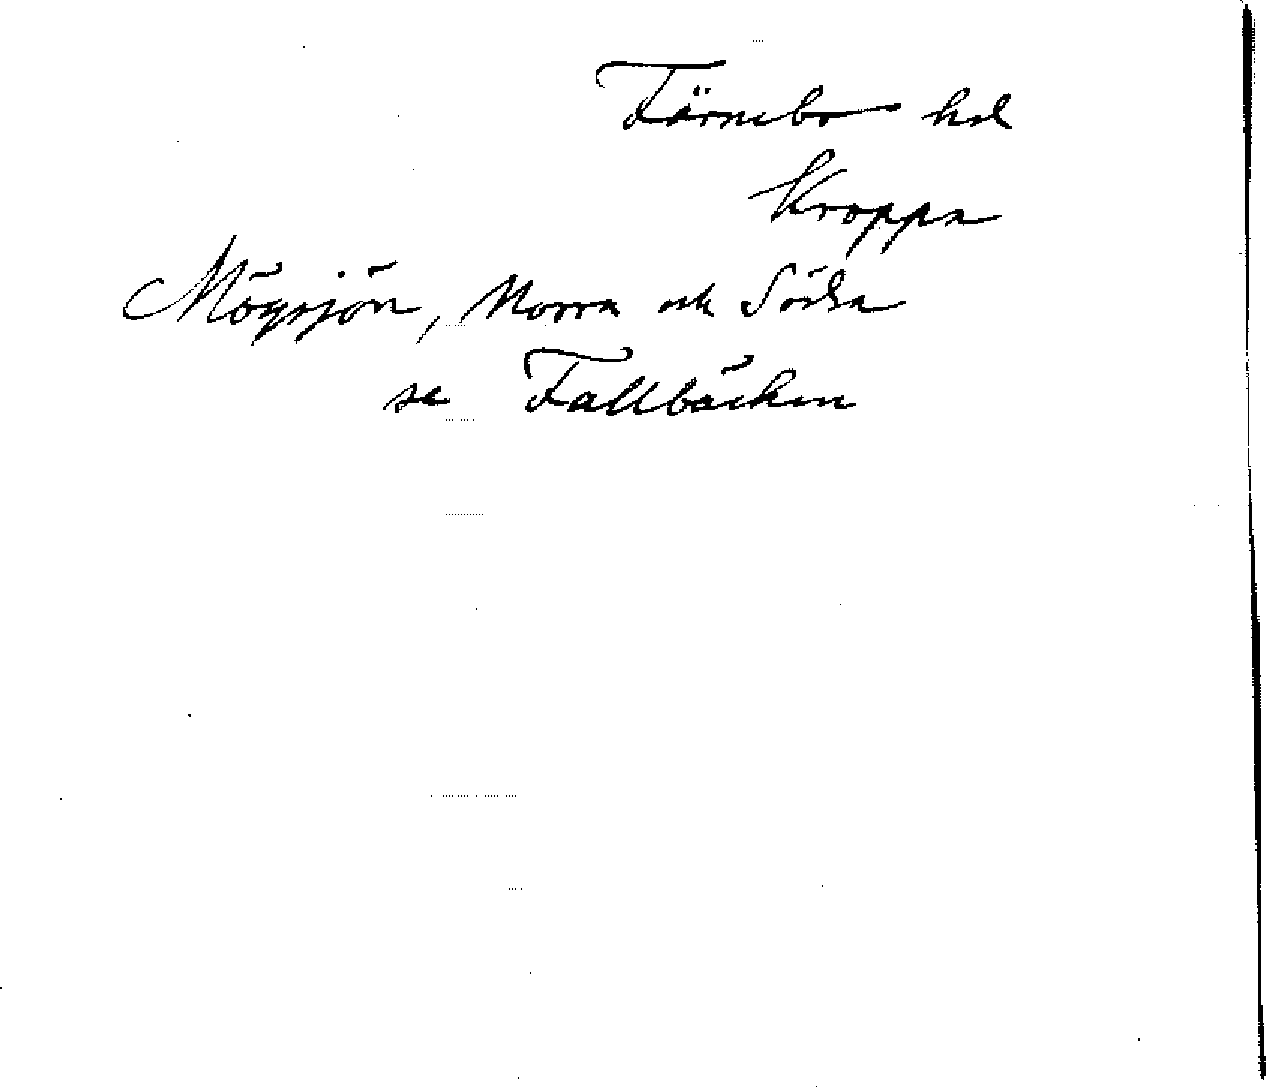 Färnebo hd
Kroppa
Mögsjön, Norra och Södra
se Fallbäcken